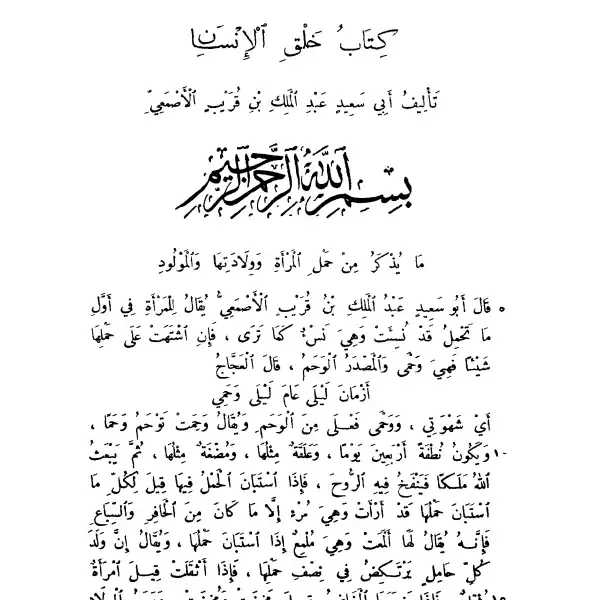 كِتَابُ خَلْقِ الْإِنْسَانِ
تَأْلِيفُ أَبِي سَعِيدٍ عَبْدِ الْمَلِكِ بْنِ قُرَيْبٍ الْأَصْمَعِيِّ
بِسْمِ اللهِ الرَّحْمٰنِ الرَّحِيمِ
مَا يُذْكَرُ مِنْ حَمْلِ الْمَرْأَةِ وَوِلَادَتِهَا وَالْمَوْلُودِ
٥ قَالَ أَبُو سَعِيدٍ عَبْدُ الْمَلِكِ بْنُ قُرَيْبٍ الْأَصْمَعِيُّ يُقَالُ لِلْمَرْأَةِ فِي أَوَّلِ
مَا تَحْمِلُ قَدْ نُسِئَتْ وَهِيَ نَسْءٌ كَمَا تَرَى ، فَإِنِ اشْتَهَتْ عَلَى حَمْلِهَا
شَيْئًا فَهِيَ وَحْمَى وَالْمَصْدَرُ الْوَحَمُ ، قَالَ الْعَجَّاجُ
أَزْمَانَ لَيْلَى عَامَ لَيْلَى وَحَمِي
أَيْ شَهْوَتِي ، وَوَحْمَى فَعْلَى مِنَ الْوَحَمِ وَيُقَالُ وَحِمَتْ تَوْحَمُ وَحَمًا ،
١٠ وَيَكُونُ نُطْفَةً أَرْبَعِينَ يَوْمًا ، وَعَلَقَةً مِثْلَهَا ، وَمُضْغَةً مِثْلَهَا ، ثُمَّ يَبْعَثُ
اللهُ مَلَكًا فَيَنْفُخُ فِيهِ الرُّوحَ ، فَإِذَا اسْتَبَانَ الْحَمْلُ فِيهَا قِيلَ لِكُلِّ مَا
اسْتَبَانَ حَمْلُهَا قَدْ أَرْأَتْ وَهِيَ مُرْءٍ إِلَّا مَا كَانَ مِنَ الْحَافِرِ وَالسِّبَاعِ
فَإِنَّهُ يُقَالُ لَهَا أَلْمَعَتْ وَهِيَ مُلْمِعٌ إِذَا اسْتَبَانَ حَمْلُهَا ، وَيُقَالُ إِنَّ وَلَدَ
كُلِّ حَامِلٍ يَرْتَكِضُ فِي نِصْفِ حَمْلِهَا ، فَإِذَا أَثْقَلَتْ قِيلَ امْرَأَةٌ